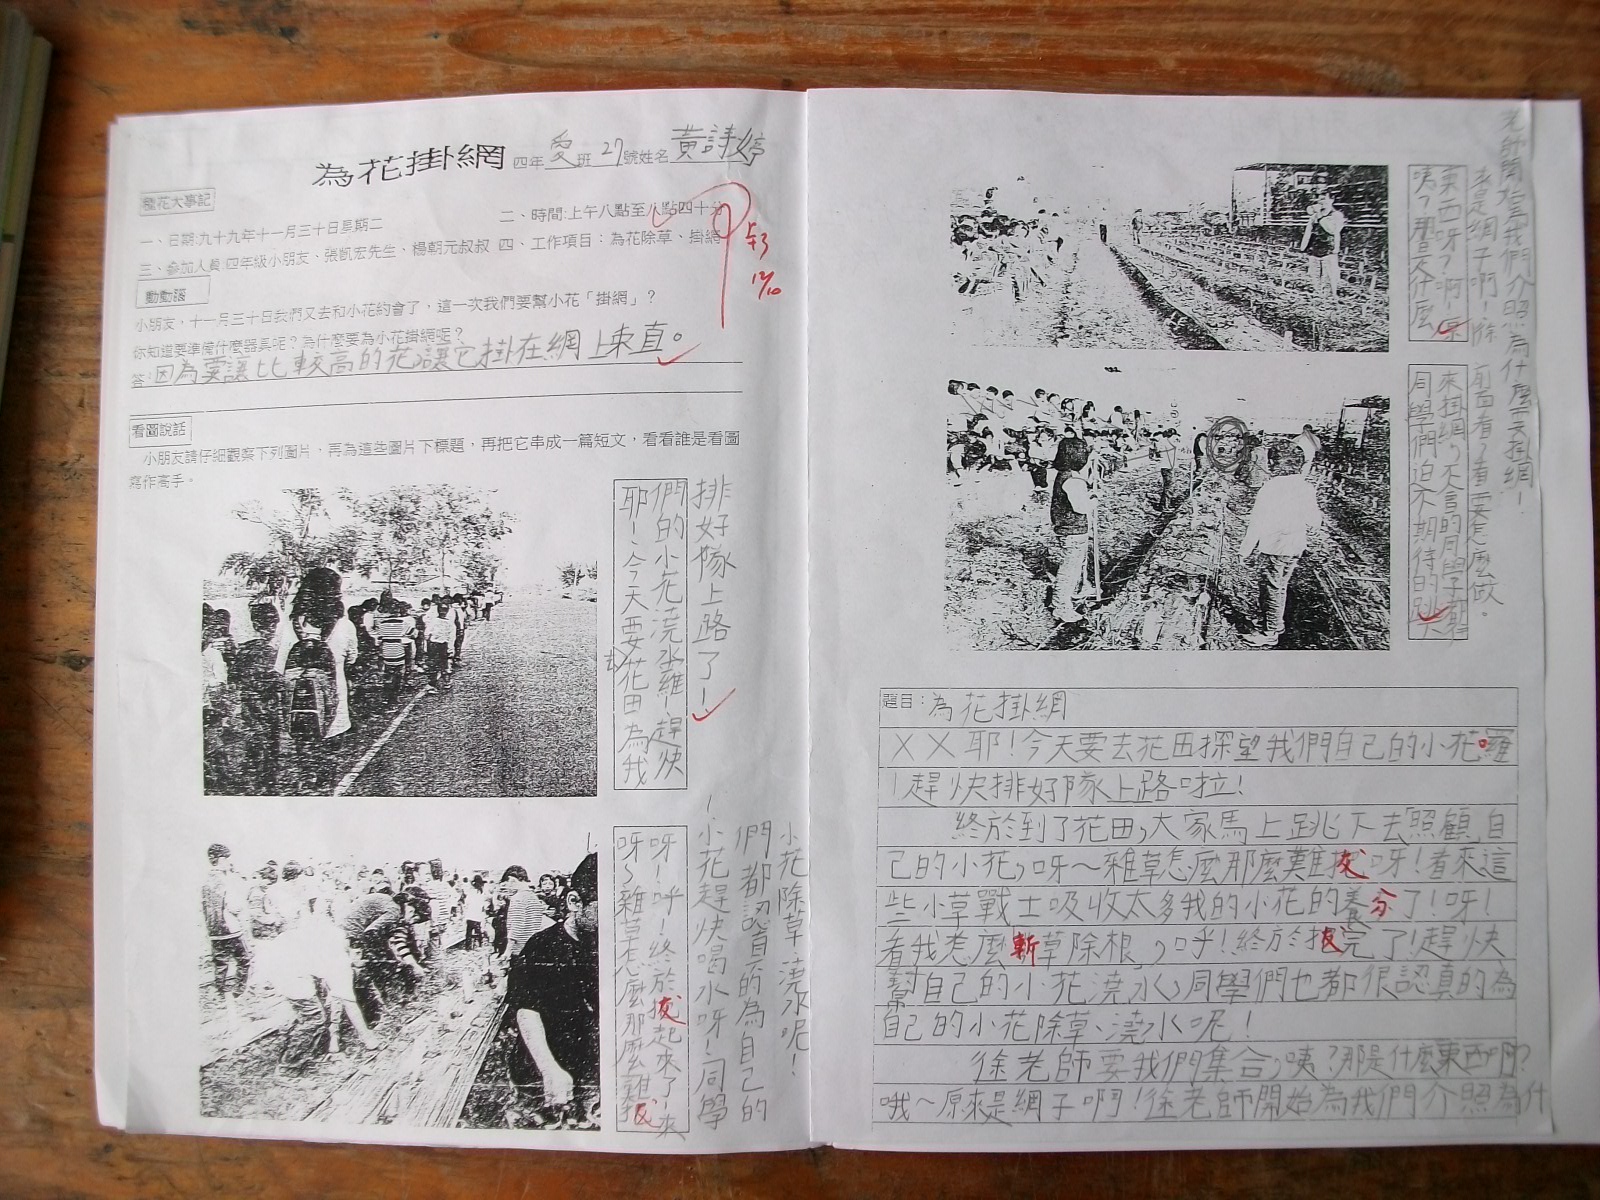 為花掛網 四年愛班27號姓名黃詩婷
種花大事記
一、日期:九十九年十一月三十日星期二 二、時間:上午八點至八點四十分
三、參加人員:四年級小朋友、張凱宏先生、楊朝元叔叔 四、工作項目：為花除草、掛網
動動腦
小朋友，十一月三十日我們又去和小花約會了，這一次我們要幫小花「掛網」？
你知道要準備什麼器具呢？為什麼要為小花掛網呢？
答:因為要讓比較高的花讓它掛在網上束直。
12/10
看圖說話
小朋友請仔細觀察下列圖片，再為這些圖片下標題，再把它串成一篇短文，看看誰是看圖
寫作高手。
耶！今天要去花田為我
們的小花澆水羅！趕快
排好隊上路了！
呀～雜草怎麼那麼難拔
呀！呼！終於拔起來了！來
！小花趕快喝水呀！同學
們都認真的為自己的
小花除草、澆水呢！
咦？那是什麼
東西呀？啊！原
來是網子啊！徐
老師開始為我們介紹為什麼要掛網！
同學們迫不期待的跳
來掛網，不會的同學都
前面看，看要怎麼做。
題目：為花掛網
××耶！今天要去花田探望我們自己的小花囉
！趕快排好隊上路啦！
終於到了花田，大家馬上跳下去照顧自
己的小花，呀～雜草怎麼那麼難拔呀！看來這
些小草戰士吸收太多我的小花的養分了！呀！
看我怎麼斬草除根，呼！終於拔完了！趕快
幫自己的小花澆水，同學們也都很認真的為
自己的小花除草、澆水呢！
徐老師要我們集合，咦？那是什麼東西啊？
哦～原來是網子啊！徐老師開始為我們介紹為什